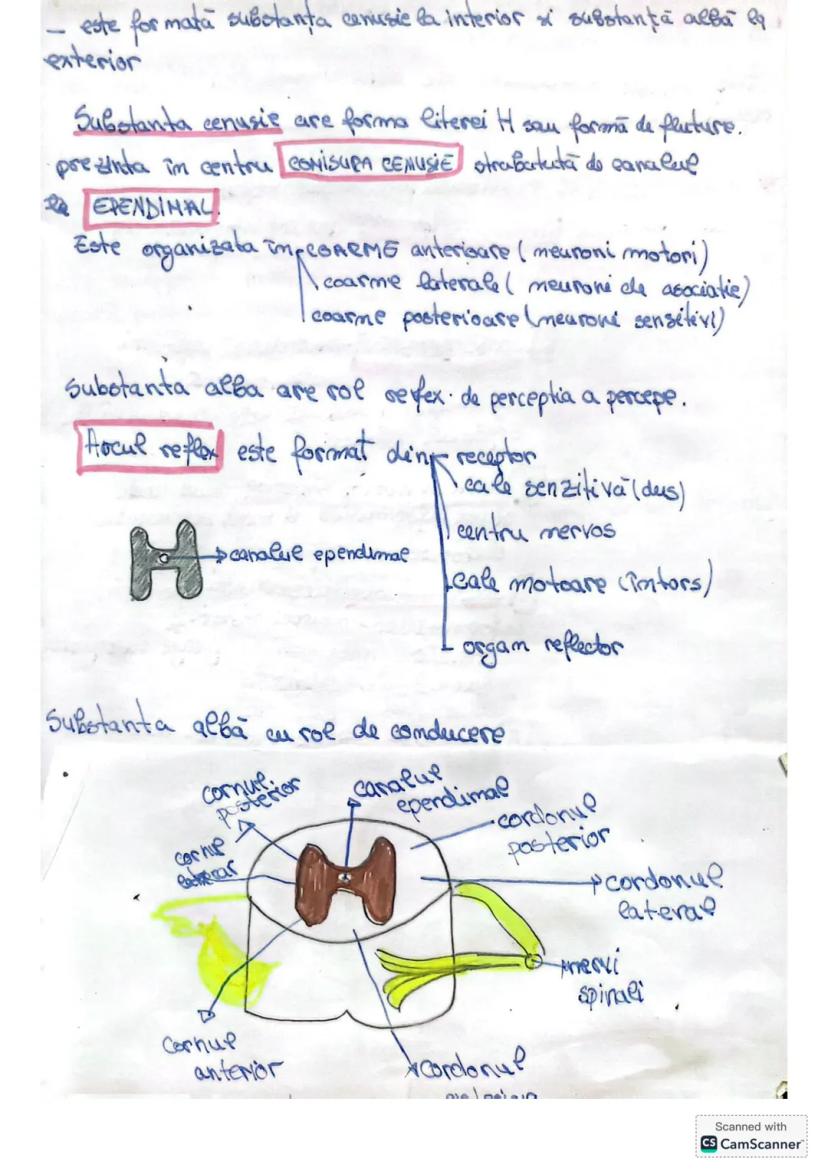 – este formată substanța cenusie la interior si substanță albă la
exterior
Substanta cenusie are forma literei H sau formă de fluture.
prezinta în centru COMISURA CENUSIE strabatută de canalul
EPENDIMAL.
Este organizata în COARME anterioare (neuroni motori)
coarme laterale (neuroni de asociatie)
coarme posterioare (neuroni sensitivi)
Substanta alba are rol reflex. de perceptia a percepe.
Arcul reflex este format din receptor
cale senzitivă (dus)
centru nervos
canalul ependimal
cale motoare (întors)
organ reflector
Substanta albă cu rol de conducere
cornul posterior
canalul ependimal
cordonul posterior
cornul
cordonul lateral
nervi spinali
Cornul anterior
cordonul
Scanned with
CS CamScanner